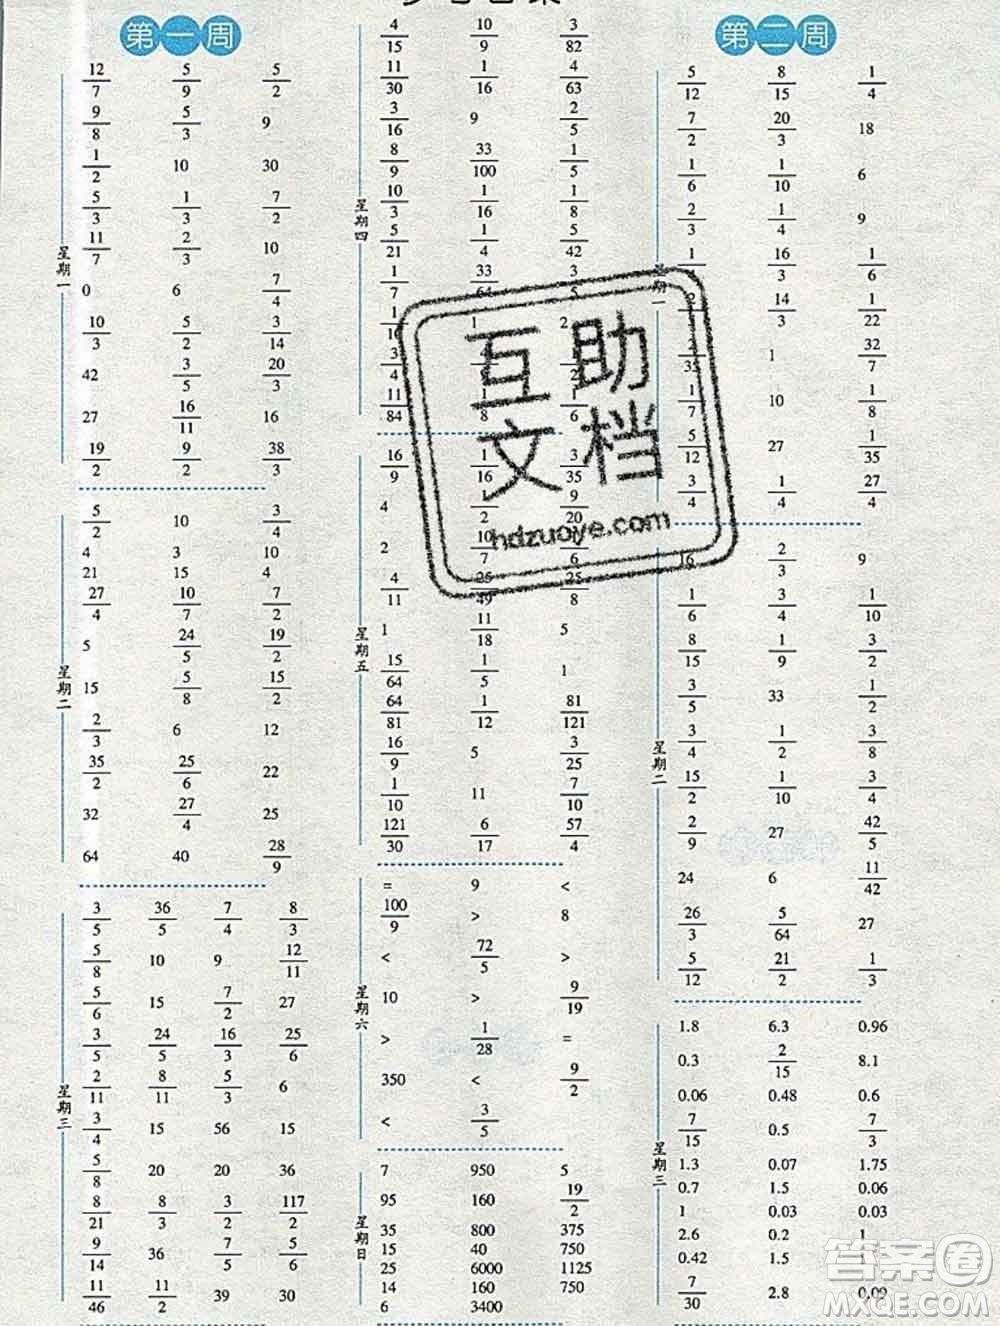 第一周
星期一
12/7 5/9 5/2
9/8 5/3 9
1/2 10 30
5/3 1/3 7/2
11/7 2/3 10
0 6 7/4
10/3 5/2 3/14
42 3/5 20/3
27 16/11 16
19/2 9/2 38/3
星期二
5/2 10 3/4
4 3 10
21 15 4
27/4 10/7 7/2
5 24/5 19/2
15 5/8 15/2
2/3 6 12
35/2 25/6 22
32 27/4 25
64 40 28/9
星期三
3/5 36/5 7/4 8/3
5/8 10 9 12/11
5/6 15 7/2 27
3/5 24/5 16/3 25/6
2/11 8/11 5/3 6
3/4 15 56 15
5/8 20 20 36
8/21 8/3 3/2 117/2
9/14 36 7/5 5/6
11/46 11/2 39 30
星期四
4/15 10/9 3/82
11/30 1/16 4/63
3/16 9 2/5
8/9 33/100 1/5
10/3 1/16 1/8
5/21 1/4 5/42
1/7 33/64 3/5
11/84 1/8 1/6
星期五
16/9 1/16 3/35
4 1/2 9/20
2 10/7
4/11 25/49 25/8
1 11/18 5
15/64 1/5 1
64/81 1/12 81/121
16/9 5 3/25
1/10 11 7/10
121/30 6/17 57/4
星期六
= 9 <
100/9 > 8
< 72/5 >
10 > 9/19
> 1/28 =
350 < 9/2
< 3/5
星期日
7 950 5
95 160 19/2
35 800 375
15 40 750
25 6000 1125
14 160 750
6 3400
第二周
星期一
5/12 8/15 1/4
7/2 20/3 18
1/6 1/10 6
2/3 1/4 9
16/3 1/6
14/3 1/22
2/35 1 32/7
1/7 10 1/8
5/12 27 11/35
3/4 1/4 27/4
星期二
16 2/3 9
1/6 3/4 1/10
8/15 1/9 3/2
3/5 33 1/2
3/4 1/2 3/8
15/2 1/10 3/4
2/9 27 42/5
24 6 11/42
26/3 5/64 27
5/12 21/2 1/3
星期三
1.8 6.3 0.96
0.3 2/15 8.1
0.06 0.48 0.6
7/15 0.5 7/3
1.3 0.07 1.75
0.7 1.5 0.06
1 0.03 0.03
2.6 0.2 1
0.42 1.5
7/30 2.8 0.09
互助
文档
hdzuoye.com
答案圈
MXQE.COM